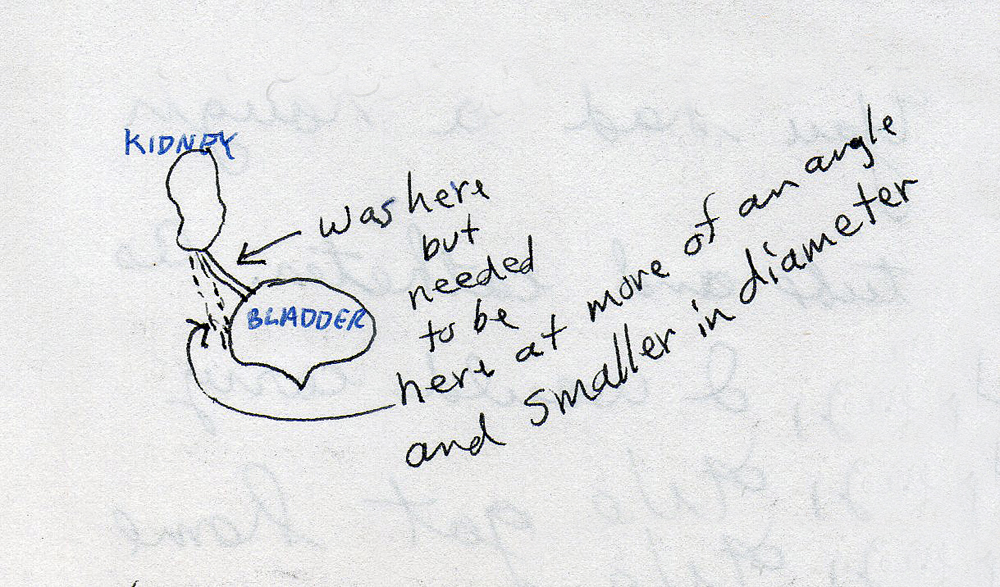 KIDNEY
was here
but
needed
to be
here at more of an angle
and smaller in diameter
BLADDER